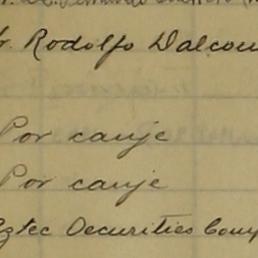 r. Rodolfo Dalcou
Por canje
Por canje
ztec Securities Comp